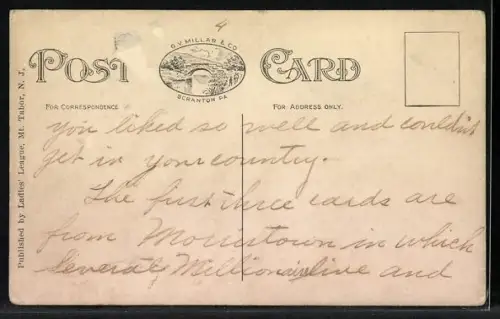 4
O. V. MILLAR & CO.
SCRANTON PA.
POST CARD
FOR CORRESPONDENCE
FOR ADDRESS ONLY.
Published by Ladies' League, Mt. Tabor, N. J.
you liked so well and couldn't
get in your country.
The first three cards are
from Morristown in which
several Millionaires live and